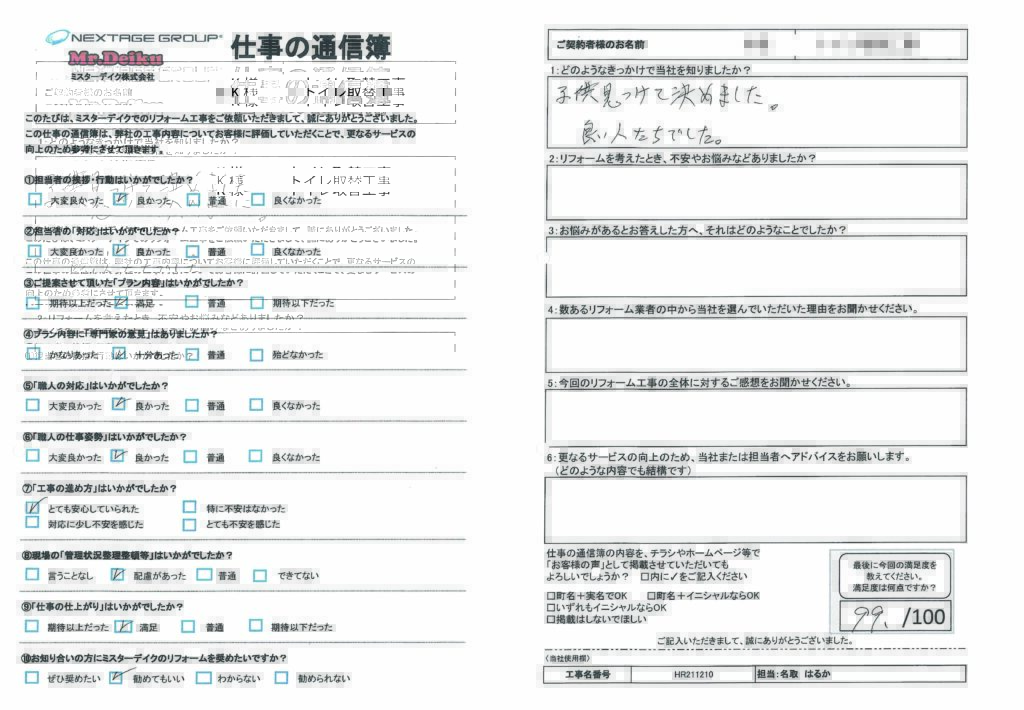 NEXTAGE GROUP
仕事の通信簿
Mr.Deiku
ミスターデイク株式会社
K 様 トイレ取替工事
このたびは、ミスターデイクでのリフォーム工事をご依頼いただきまして、誠にありがとうございました。
この仕事の通信簿は、弊社の工事内容についてお客様に評価していただくことで、更なるサービスの
向上のため参考にさせて頂きます。
①担当者の挨拶・行動はいかがでしたか？
大変良かった ✓ 良かった 普通 良くなかった
②担当者の「対応」はいかがでしたか？
大変良かった ✓ 良かった 普通 良くなかった
③ご提案させて頂いた「プラン内容」はいかがでしたか？
期待以上だった ✓ 満足 普通 期待以下だった
④プラン内容に「専門家の意見」はありましたか？
かなりあった ✓ 十分あった 普通 殆どなかった
⑤「職人の対応」はいかがでしたか？
大変良かった ✓ 良かった 普通 良くなかった
⑥「職人の仕事姿勢」はいかがでしたか？
大変良かった ✓ 良かった 普通 良くなかった
⑦「工事の進め方」はいかがでしたか？
✓ とても安心していられた 特に不安はなかった
対応に少し不安を感じた とても不安を感じた
⑧現場の「管理状況整理整頓等」はいかがでしたか？
言うことなし ✓ 配慮があった 普通 できてない
⑨「仕事の仕上がり」はいかがでしたか？
期待以上だった ✓ 満足 普通 期待以下だった
⑩お知り合いの方にミスターデイクのリフォームを奨めたいですか？
ぜひ奨めたい ✓ 勧めてもいい わからない 勧められない
ご契約者様のお名前
1：どのようなきっかけで当社を知りましたか？
子供見つけて決めました。
良い人たちでした。
2：リフォームを考えたとき、不安やお悩みなどありましたか？
3：お悩みがあるとお答えした方へ、それはどのようなことでしたか？
4：数あるリフォーム業者の中から当社を選んでいただいた理由をお聞かせください。
5：今回のリフォーム工事の全体に対するご感想をお聞かせください。
6：更なるサービスの向上のため、当社または担当者へアドバイスをお願いします。
（どのような内容でも結構です）
仕事の通信簿の内容を、チラシやホームページ等で
「お客様の声」として掲載させていただいても
よろしいでしょうか？ □内に✓をご記入ください
□町名＋実名でOK □町名＋イニシャルならOK
□いずれもイニシャルならOK
□掲載はしないでほしい
最後に今回の満足度を
教えてください。
満足度は何点ですか？
99. /100
ご記入いただきまして、誠にありがとうございました。
（当社使用欄）
工事名番号 HR211210 担当：名取 はるか